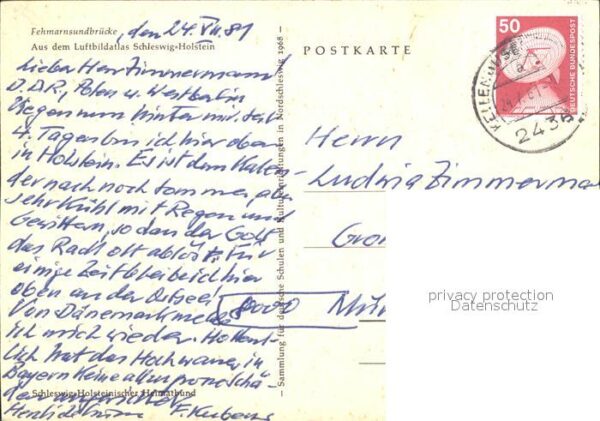 Fehmarnsundbrücke
Aus dem Luftbildatlas Schleswig-Holstein
, den 24. VII. 81
Lieber Herr Zimmermann
D.D.R., Polen u. Westberlin
liegen nun hinter mir. Seit
4 Tagen bin ich hier oben
in Holstein. Es ist dem Kalen-
der nach noch Sommer, aber
sehr kühl mit Regen und
Gewittern, so dan der Golf
das Radl oft ablöst. Für
einige Zeit bleibe ich hier
oben an der Ostsee!
Von Dänemark melde
ich mich wieder. Hoffent-
lich hat das Hochwasser in
Bayern keine allzu grossen Schä-
den
Schleswig-Holsteinischer Heimatbund
Herzlichst Ihr F.
– Sammlung für deutsche Schulen und Kultureinrichtungen in Nordschleswig 1968 –
POSTKARTE
50
DEUTSCHE BUNDESPOST
2435
Herrn
Ludwig Zimmerma
8000 Mün
privacy protection
Datenschutz